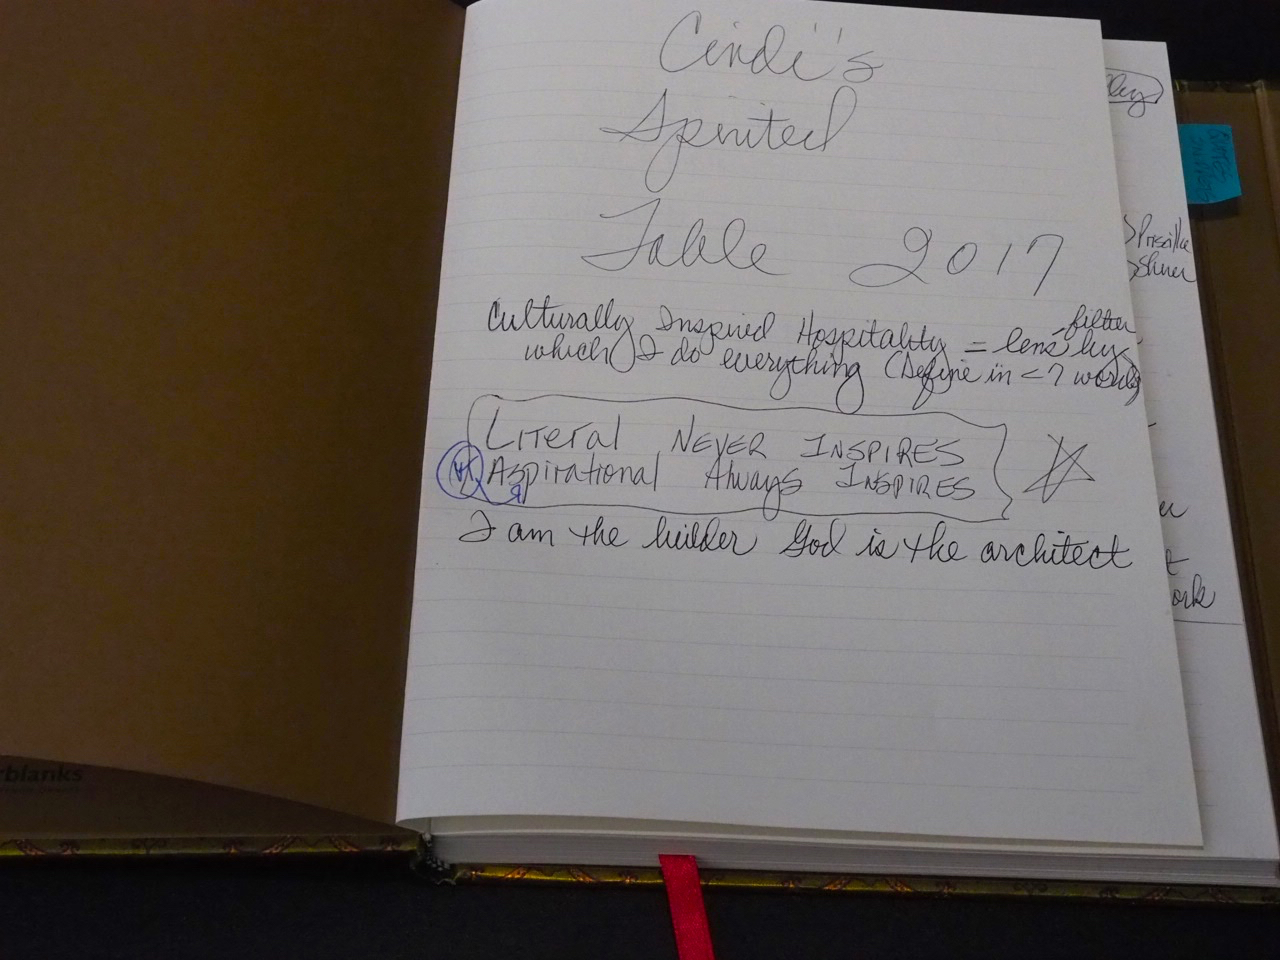 Cindi's
Spirited
Table 2017
filter
Culturally Inspired Hospitality = lens by
which I do everything (Define in < 7 words)
Literal NEVER INSPIRES
Aspirational Always INSPIRES
I am the builder God is the architect
Priscilla
Shirer
ork
rblanks